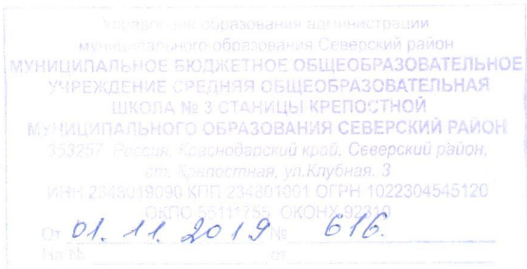 Управление образования администрации
муниципального образования Северский район
МУНИЦИПАЛЬНОЕ БЮДЖЕТНОЕ ОБЩЕОБРАЗОВАТЕЛЬНОЕ
УЧРЕЖДЕНИЕ СРЕДНЯЯ ОБЩЕОБРАЗОВАТЕЛЬНАЯ
ШКОЛА № 3 СТАНИЦЫ КРЕПОСТНОЙ
МУНИЦИПАЛЬНОГО ОБРАЗОВАНИЯ СЕВЕРСКИЙ РАЙОН
353257, Россия, Краснодарский край, Северский район,
ст. Крепостная, ул.Клубная, 3
ИНН 2348019090 КПП 234801001 ОГРН 1022304545120
ОКПО 55111755 ОКОНХ 92310
От 01. 11. 2019 № 616.
На № от